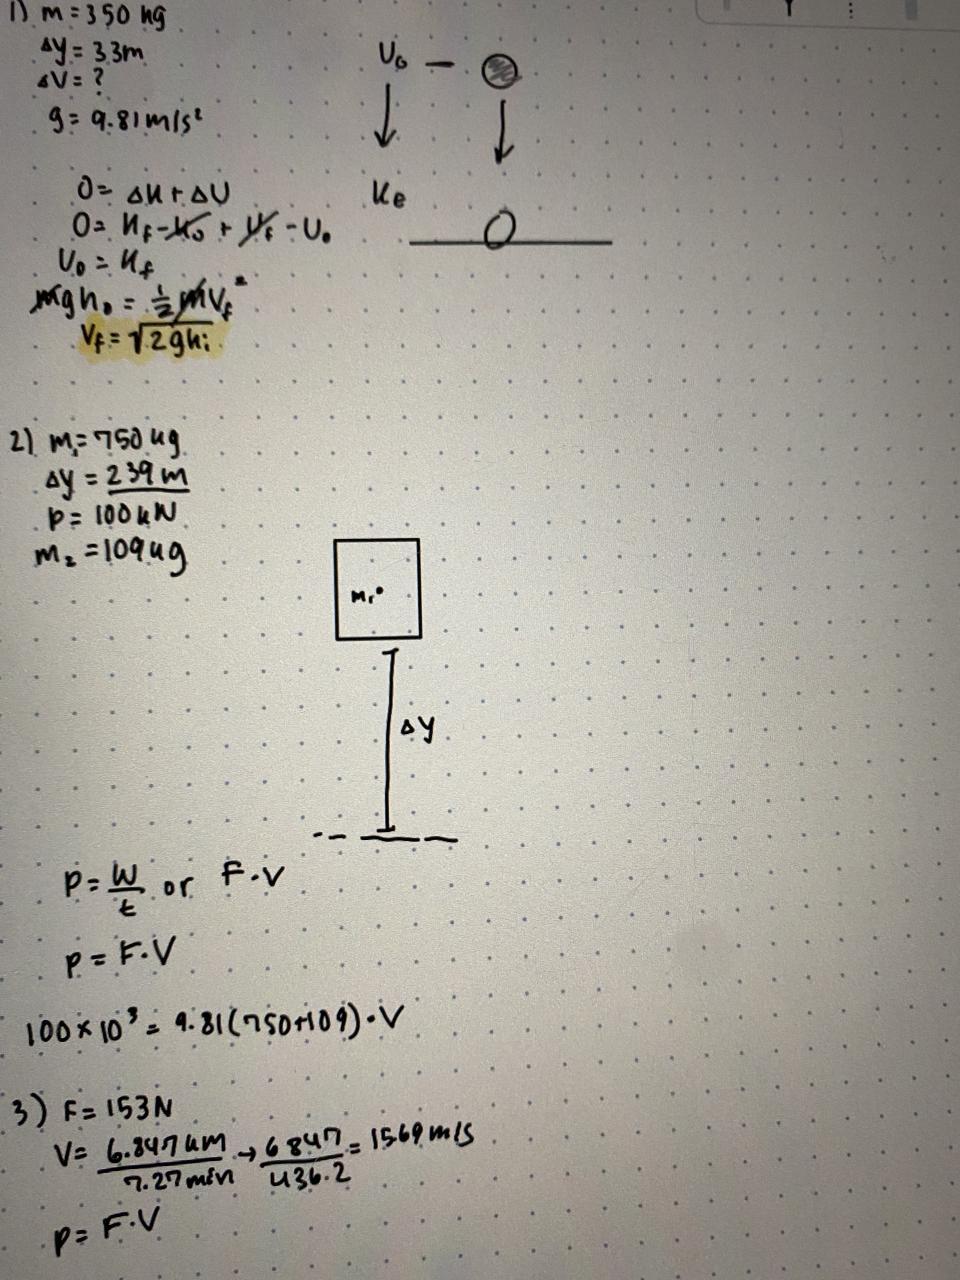 1) m = 350 kg
Δy = 33m
ΔV = ?
g = 9.81 m/s²
U₀ –
Ke
0 = ΔK + ΔU
0 = Kf - K₀ + Uf - U₀
U₀ = Kf
mgh₀ = ½mVf²
Vf = √2ghi
2) m₁ = 750 kg
Δy = 239 m
P = 100 kN
m₂ = 109 kg
m₁
Δy
P = W/t or F·V
P = F·V
100 × 10³ = 9.81(750+109)·V
3) F = 153N
V = 6.847 km/7.27 min → 6847/436.2 = 1569 m/s
P = F·V